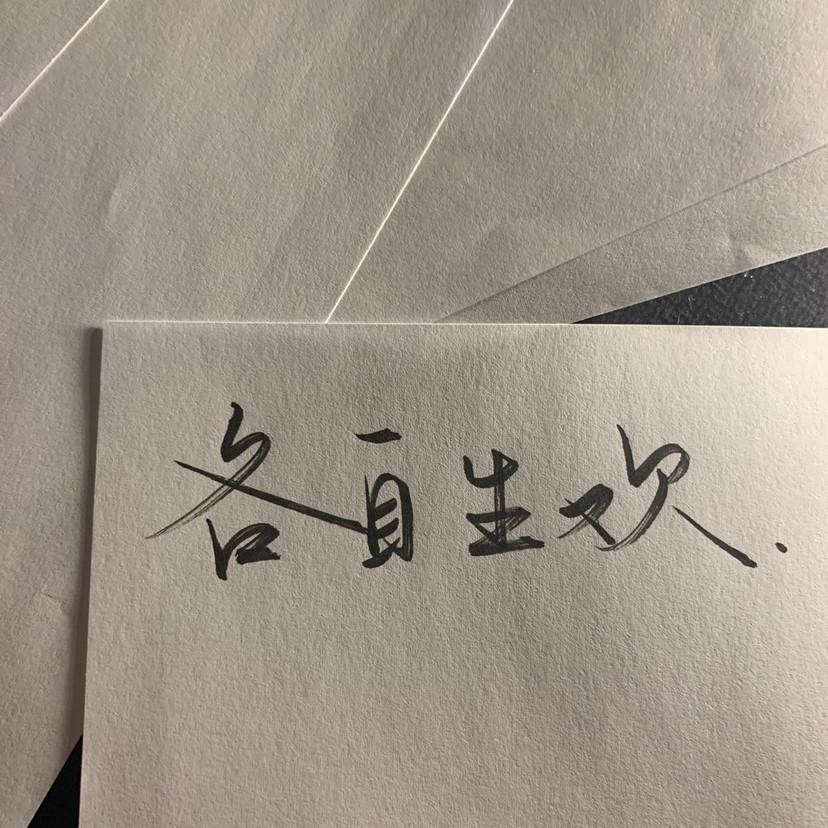 各自生欢.